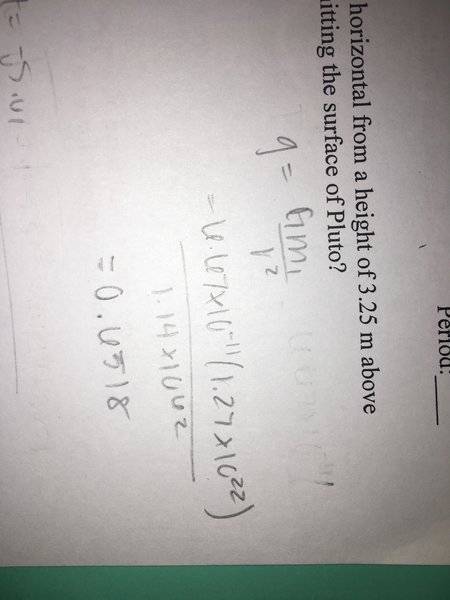 Period:____
horizontal from a height of 3.25 m above
itting the surface of Pluto?
g = Gm₁
r²
= 6.67x10⁻¹¹(1.27x10²²)
1.14x10⁶²
= 0.6518